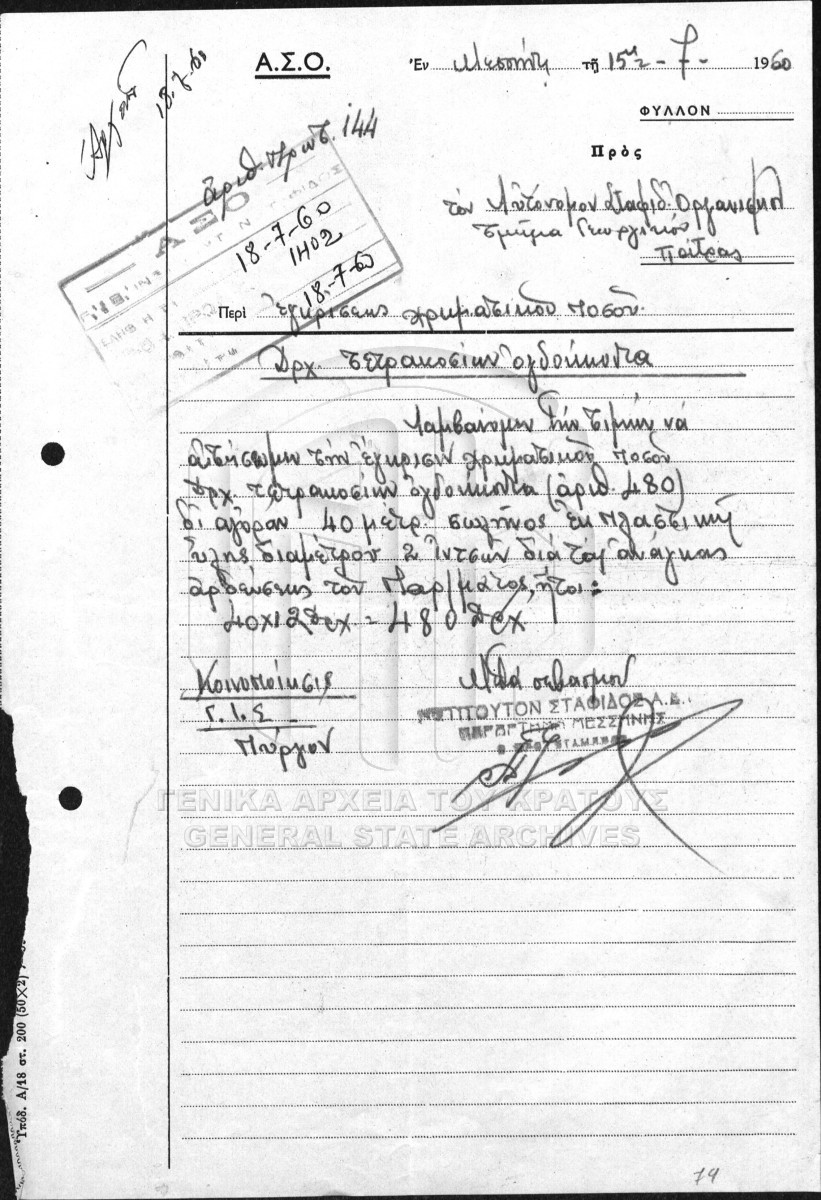 Α.Σ.Ο.
Ἐν Μεσσήνῃ τῇ 15η - 7 - 1960
ΦΥΛΛΟΝ
18-7-60
ἀριθ. πρωτ. 144
Πρὸς
τὸν Αὐτόνομον Σταφιδ. Ὀργανισμόν
Τμῆμα Γεωργικόν
Πάτρας
ΑΣΟ
18-7-60
1402
18-7-60
Περὶ ἐγκρίσεως χρηματικοῦ ποσοῦ
Δρχ. τετρακοσίων ὀγδοήκοντα
Λαμβάνομεν τὴν τιμὴν νὰ
αἰτήσωμεν τὴν ἔγκρισιν χρηματικοῦ ποσοῦ
Δρχ. τετρακοσίων ὀγδοήκοντα (ἀριθ. 480)
δι' ἀγορὰν 40 μέτρ. σωλῆνος ἐκ πλαστικῆς
ὕλης διαμέτρου 2 ἰντσῶν διὰ τὰς ἀνάγκας
ἀρδεύσεως τοῦ Παρ/ματος, ἤτοι:
40 Χ 12 Δρχ = 480 Δρχ
Κοινοποίησις
Γ.Ι.Σ
Πύργον
Μετὰ σεβασμοῦ
ΙΝΣΤΙΤΟΥΤΟΝ ΣΤΑΦΙΔΟΣ Α.Σ.
ΠΑΡΑΡΤΗΜΑ ΜΕΣΣΗΝΗΣ
ΓΕΝΙΚΑ ΑΡΧΕΙΑ ΤΟΥ ΚΡΑΤΟΥΣ
GENERAL STATE ARCHIVES
Ὑπόδ. Α/18 στ. 200 (50Χ2)
79